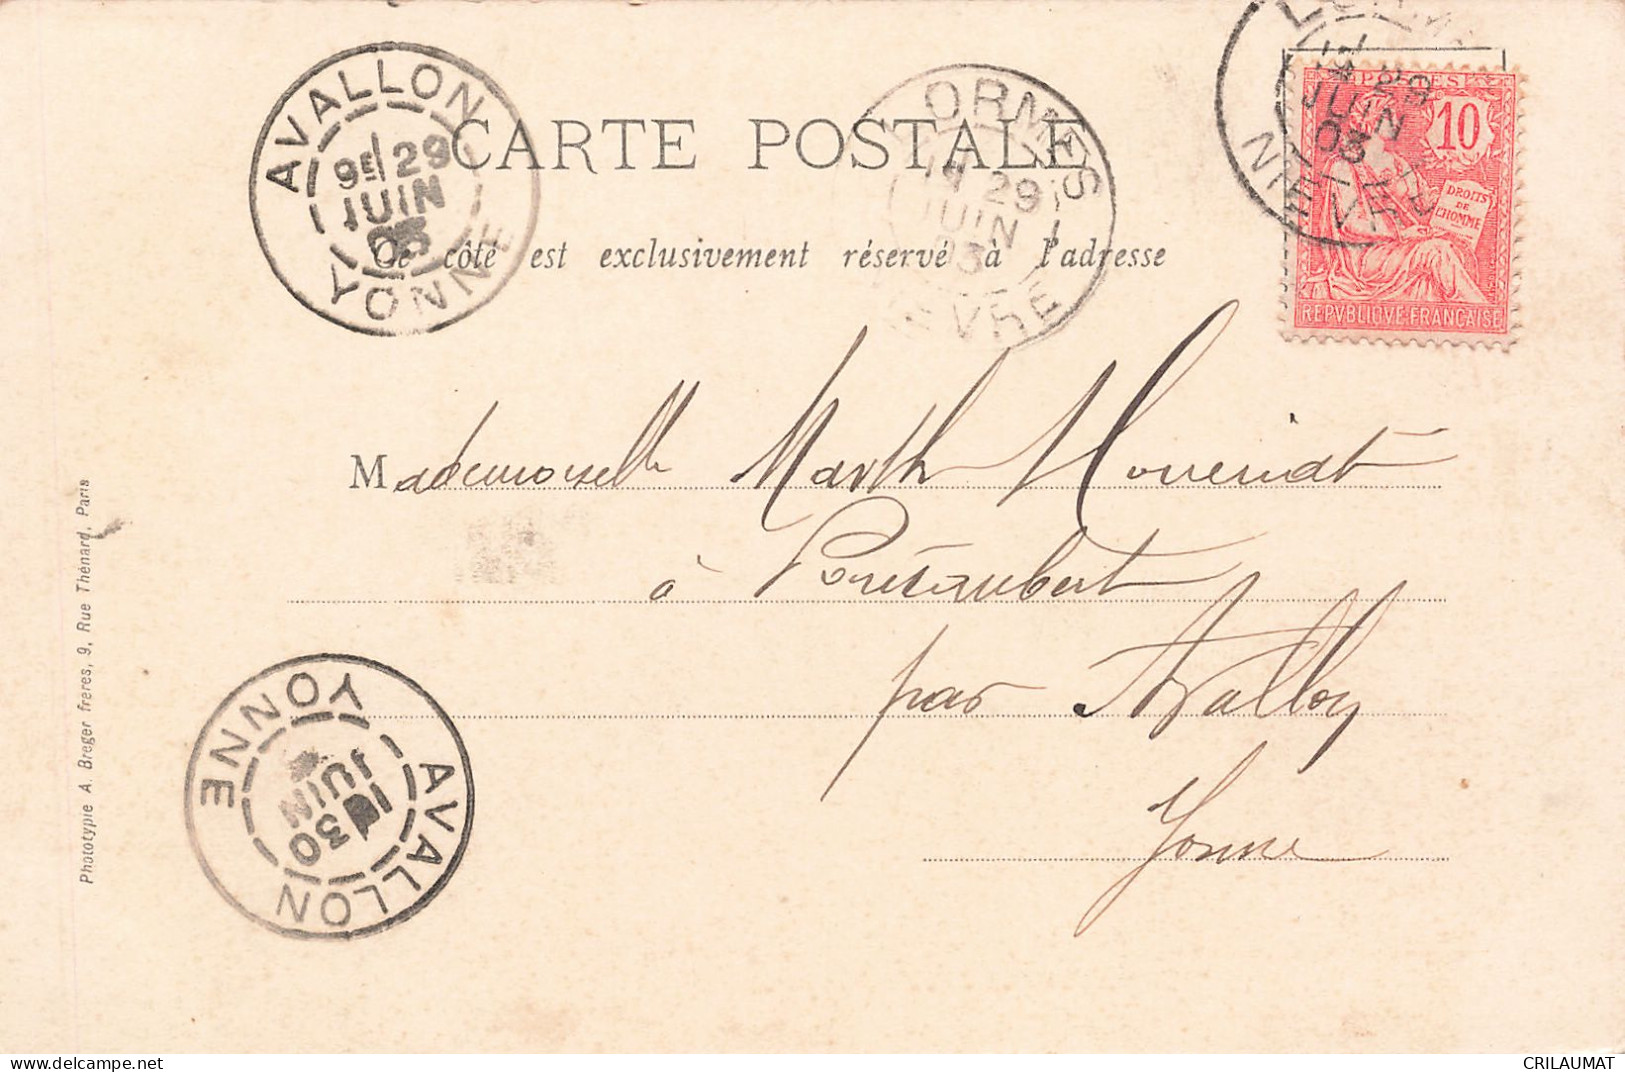 AVALLON
9E 29
JUIN
03
YONNE
CARTE POSTALE
LORMES
29
JUIN
03
NIEVRE
29
JUIN
03
NIEVRE
POSTES
10
DROITS
DE
L'HOMME
REPVBLIQVE FRANÇAISE
Ce côté est exclusivement réservé à l'adresse
Mademoiselle Marth
à
par Avallon
Yonne
AVALLON
30
JUIN
YONNE
Phototypie A. Breger frères, 9, Rue Thénard, Paris
Delcampe.net
CRILAUMAT